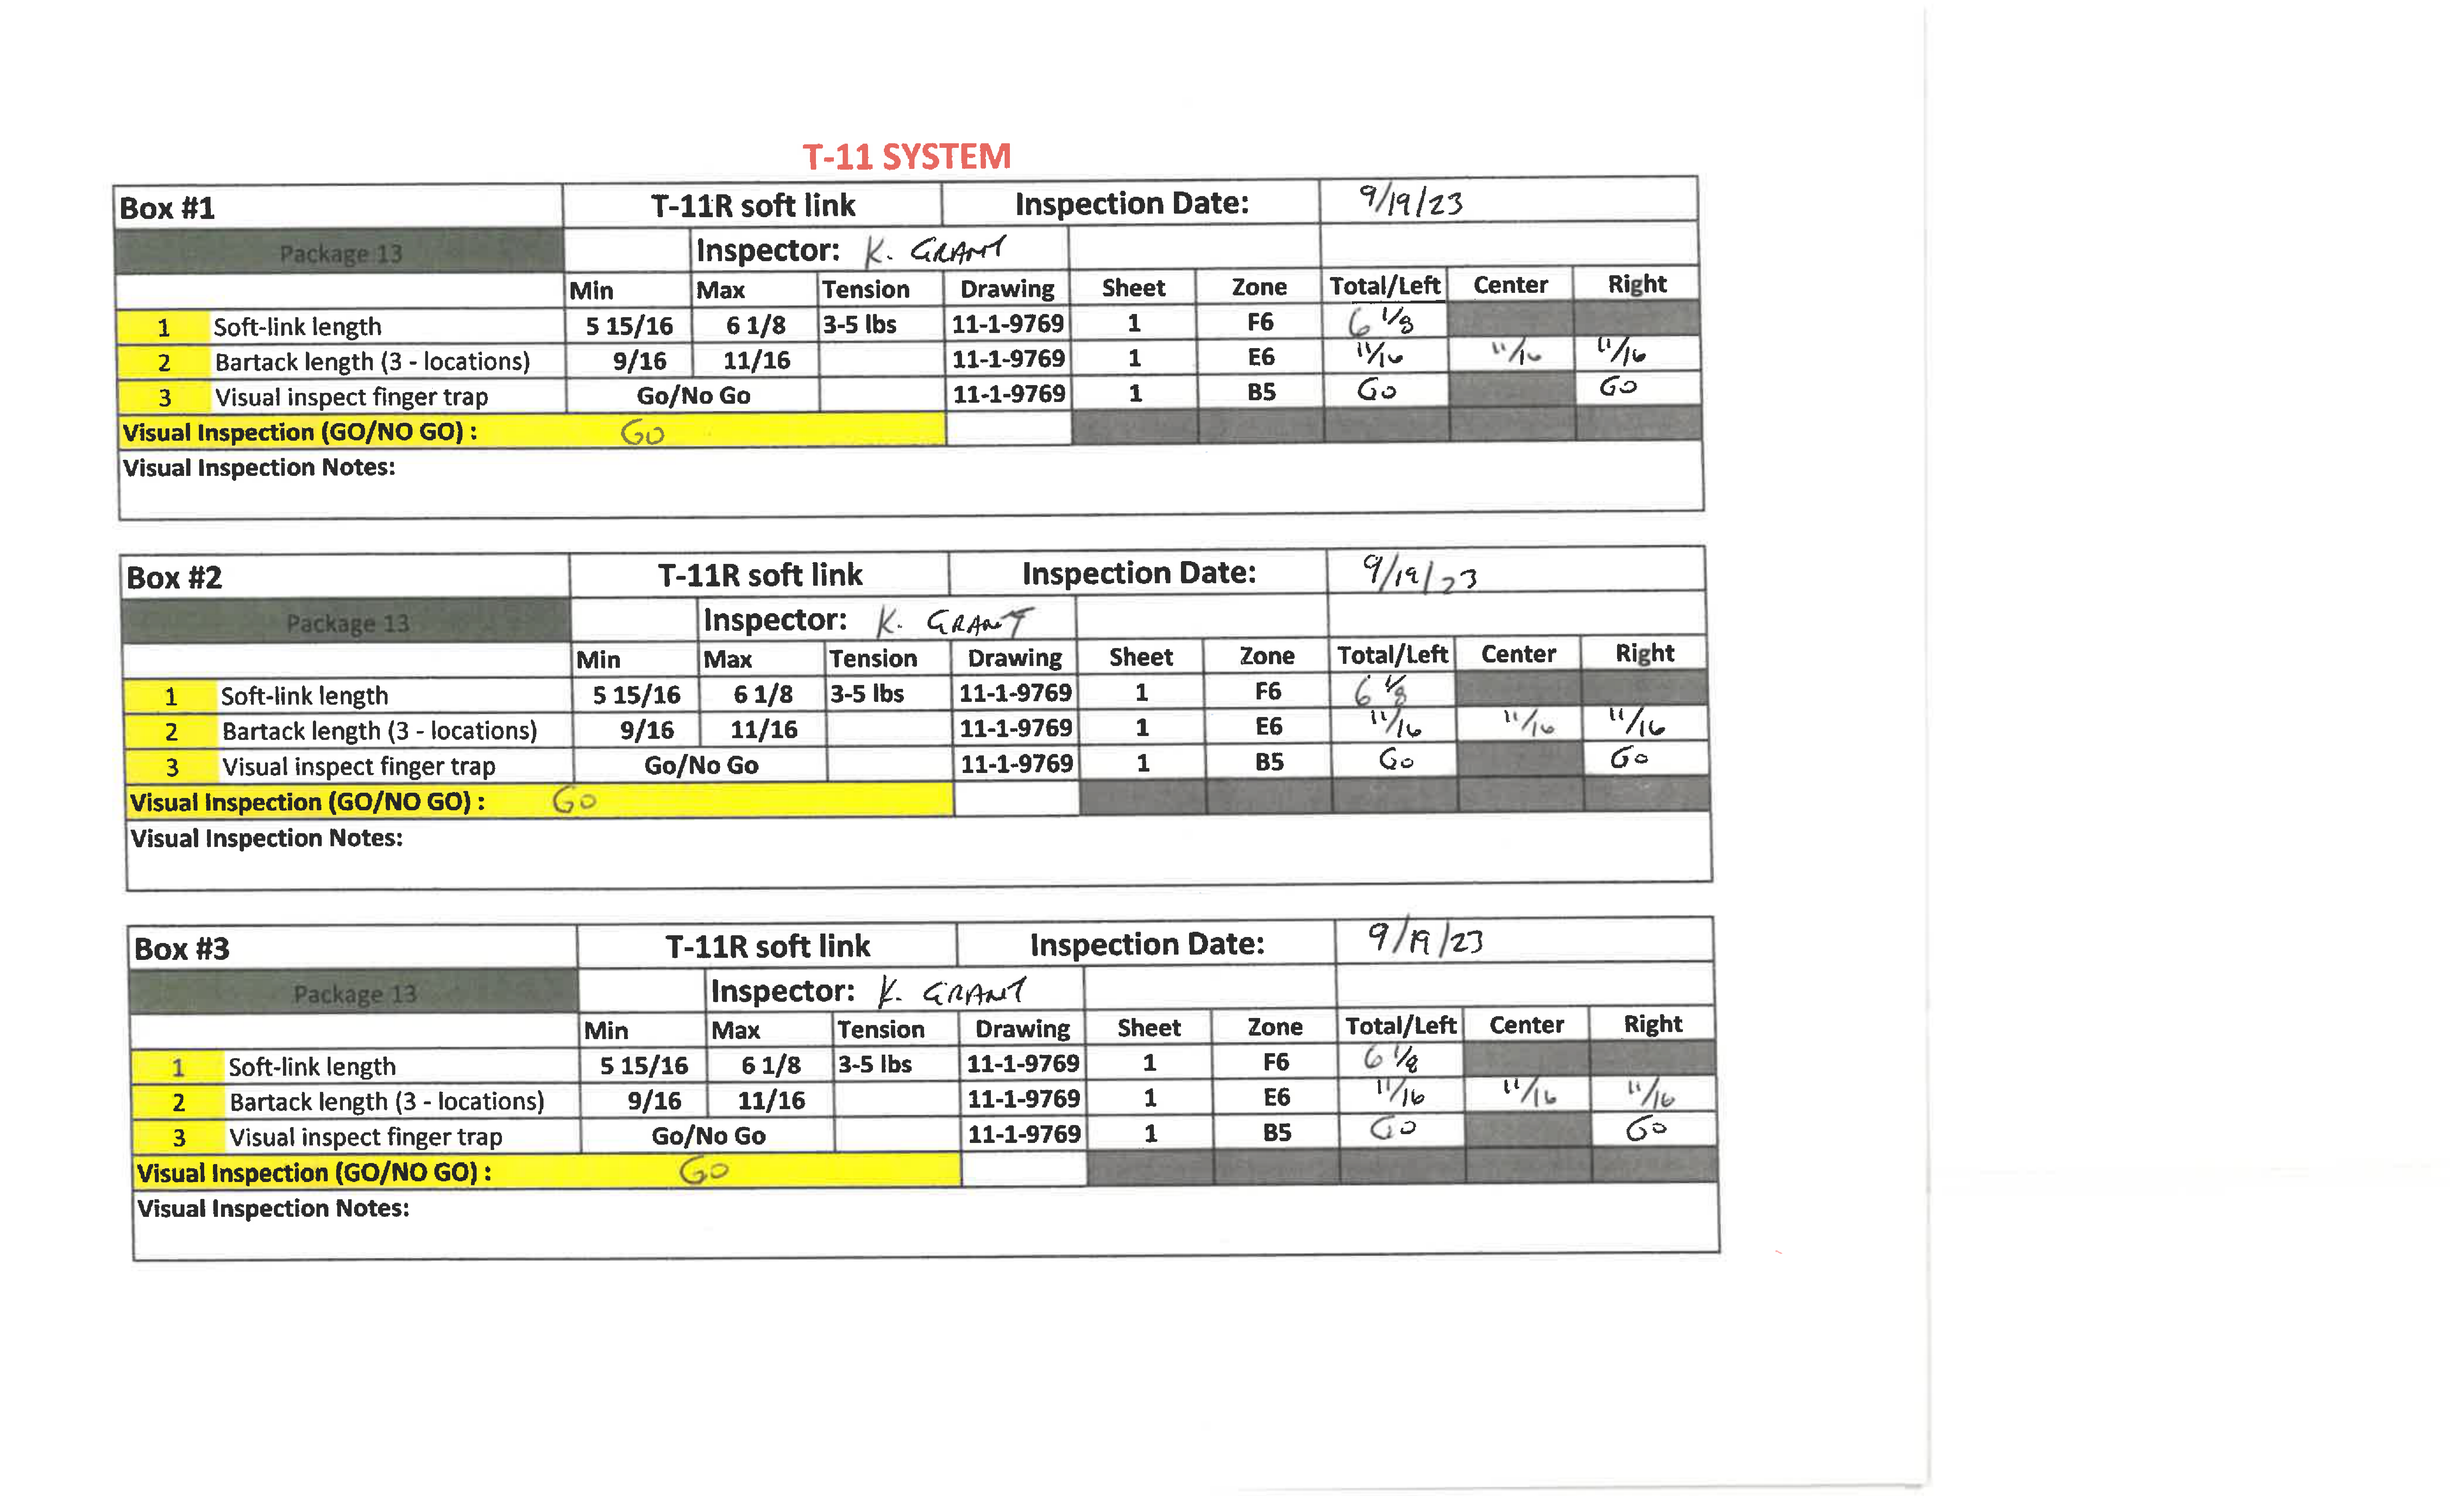 T-11 SYSTEM
Box #1 T-11R soft link Inspection Date: 9/19/23
Package 13 Inspector: K. GRANT
Min Max Tension Drawing Sheet Zone Total/Left Center Right
1 Soft-link length 5 15/16 6 1/8 3-5 lbs 11-1-9769 1 F6 6 1/8
2 Bartack length (3 - locations) 9/16 11/16 11-1-9769 1 E6 11/16 11/16 11/16
3 Visual inspect finger trap Go/No Go 11-1-9769 1 B5 GO GO
Visual Inspection (GO/NO GO) : GO
Visual Inspection Notes:
Box #2 T-11R soft link Inspection Date: 9/19/23
Package 13 Inspector: K. GRANT
Min Max Tension Drawing Sheet Zone Total/Left Center Right
1 Soft-link length 5 15/16 6 1/8 3-5 lbs 11-1-9769 1 F6 6 1/8
2 Bartack length (3 - locations) 9/16 11/16 11-1-9769 1 E6 11/16 11/16 11/16
3 Visual inspect finger trap Go/No Go 11-1-9769 1 B5 Go Go
Visual Inspection (GO/NO GO) : GO
Visual Inspection Notes:
Box #3 T-11R soft link Inspection Date: 9/19/23
Package 13 Inspector: K. GRANT
Min Max Tension Drawing Sheet Zone Total/Left Center Right
1 Soft-link length 5 15/16 6 1/8 3-5 lbs 11-1-9769 1 F6 6 1/8
2 Bartack length (3 - locations) 9/16 11/16 11-1-9769 1 E6 11/16 11/16 11/16
3 Visual inspect finger trap Go/No Go 11-1-9769 1 B5 GO GO
Visual Inspection (GO/NO GO) : GO
Visual Inspection Notes: